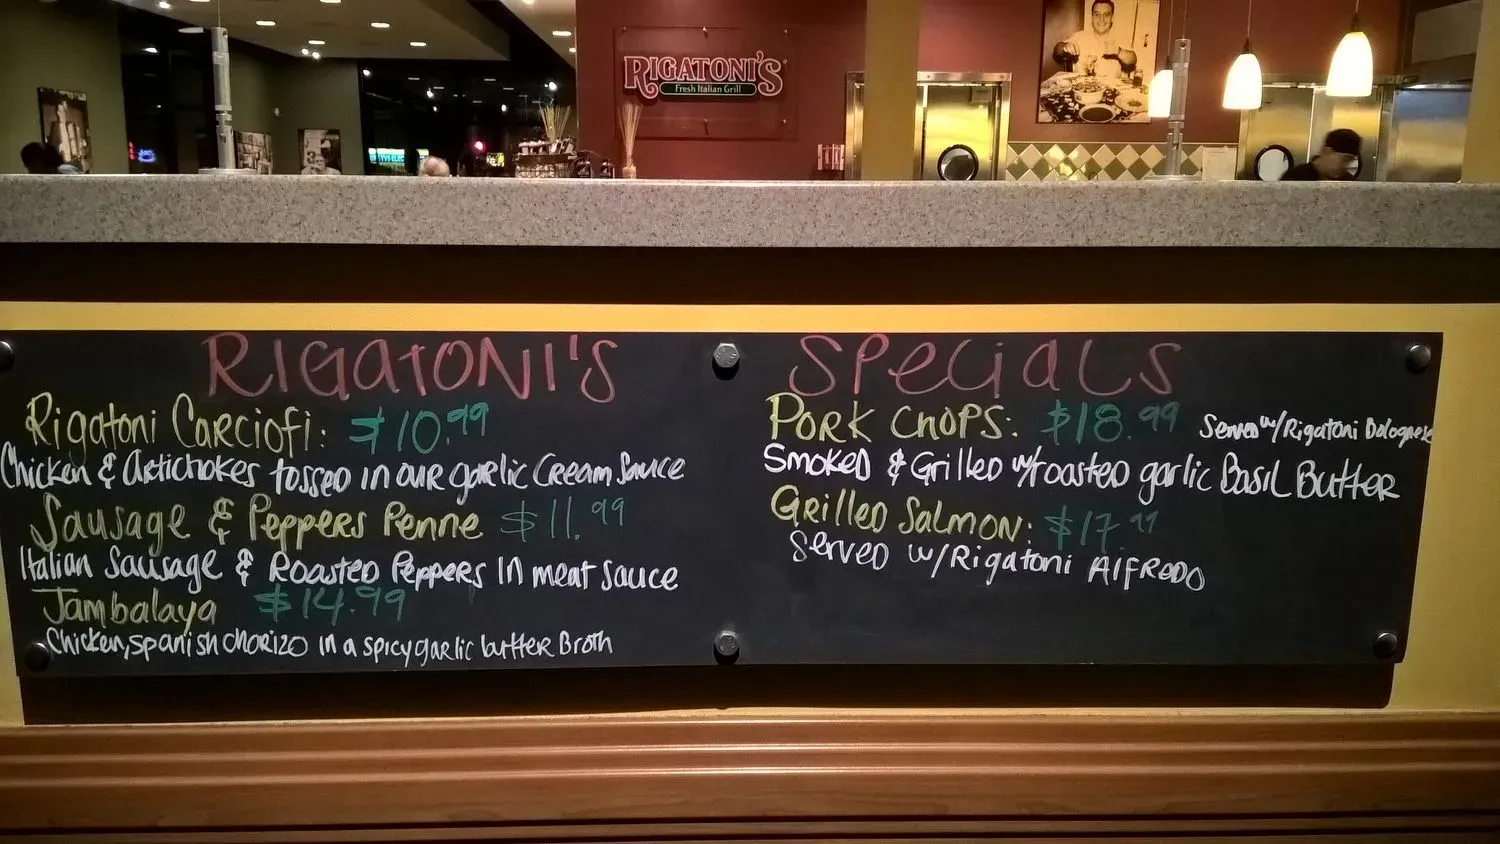 RIGATONI'S
Fresh Italian Grill
RIGATONI'S SPECIALS
Rigatoni Carciofi: $10.99
Chicken & Artichokes tossed in our garlic Cream Sauce
Sausage & Peppers Penne $11.99
Italian Sausage & Roasted Peppers In meat sauce
Jambalaya $14.99
Chicken, spanish chorizo in a spicy garlic butter Broth
PORK CHOPS: $18.99 Served w/Rigatoni Bolognese
Smoked & Grilled w/roasted garlic Basil Butter
Grilled Salmon: $17.99
Served w/Rigatoni AlFREDO